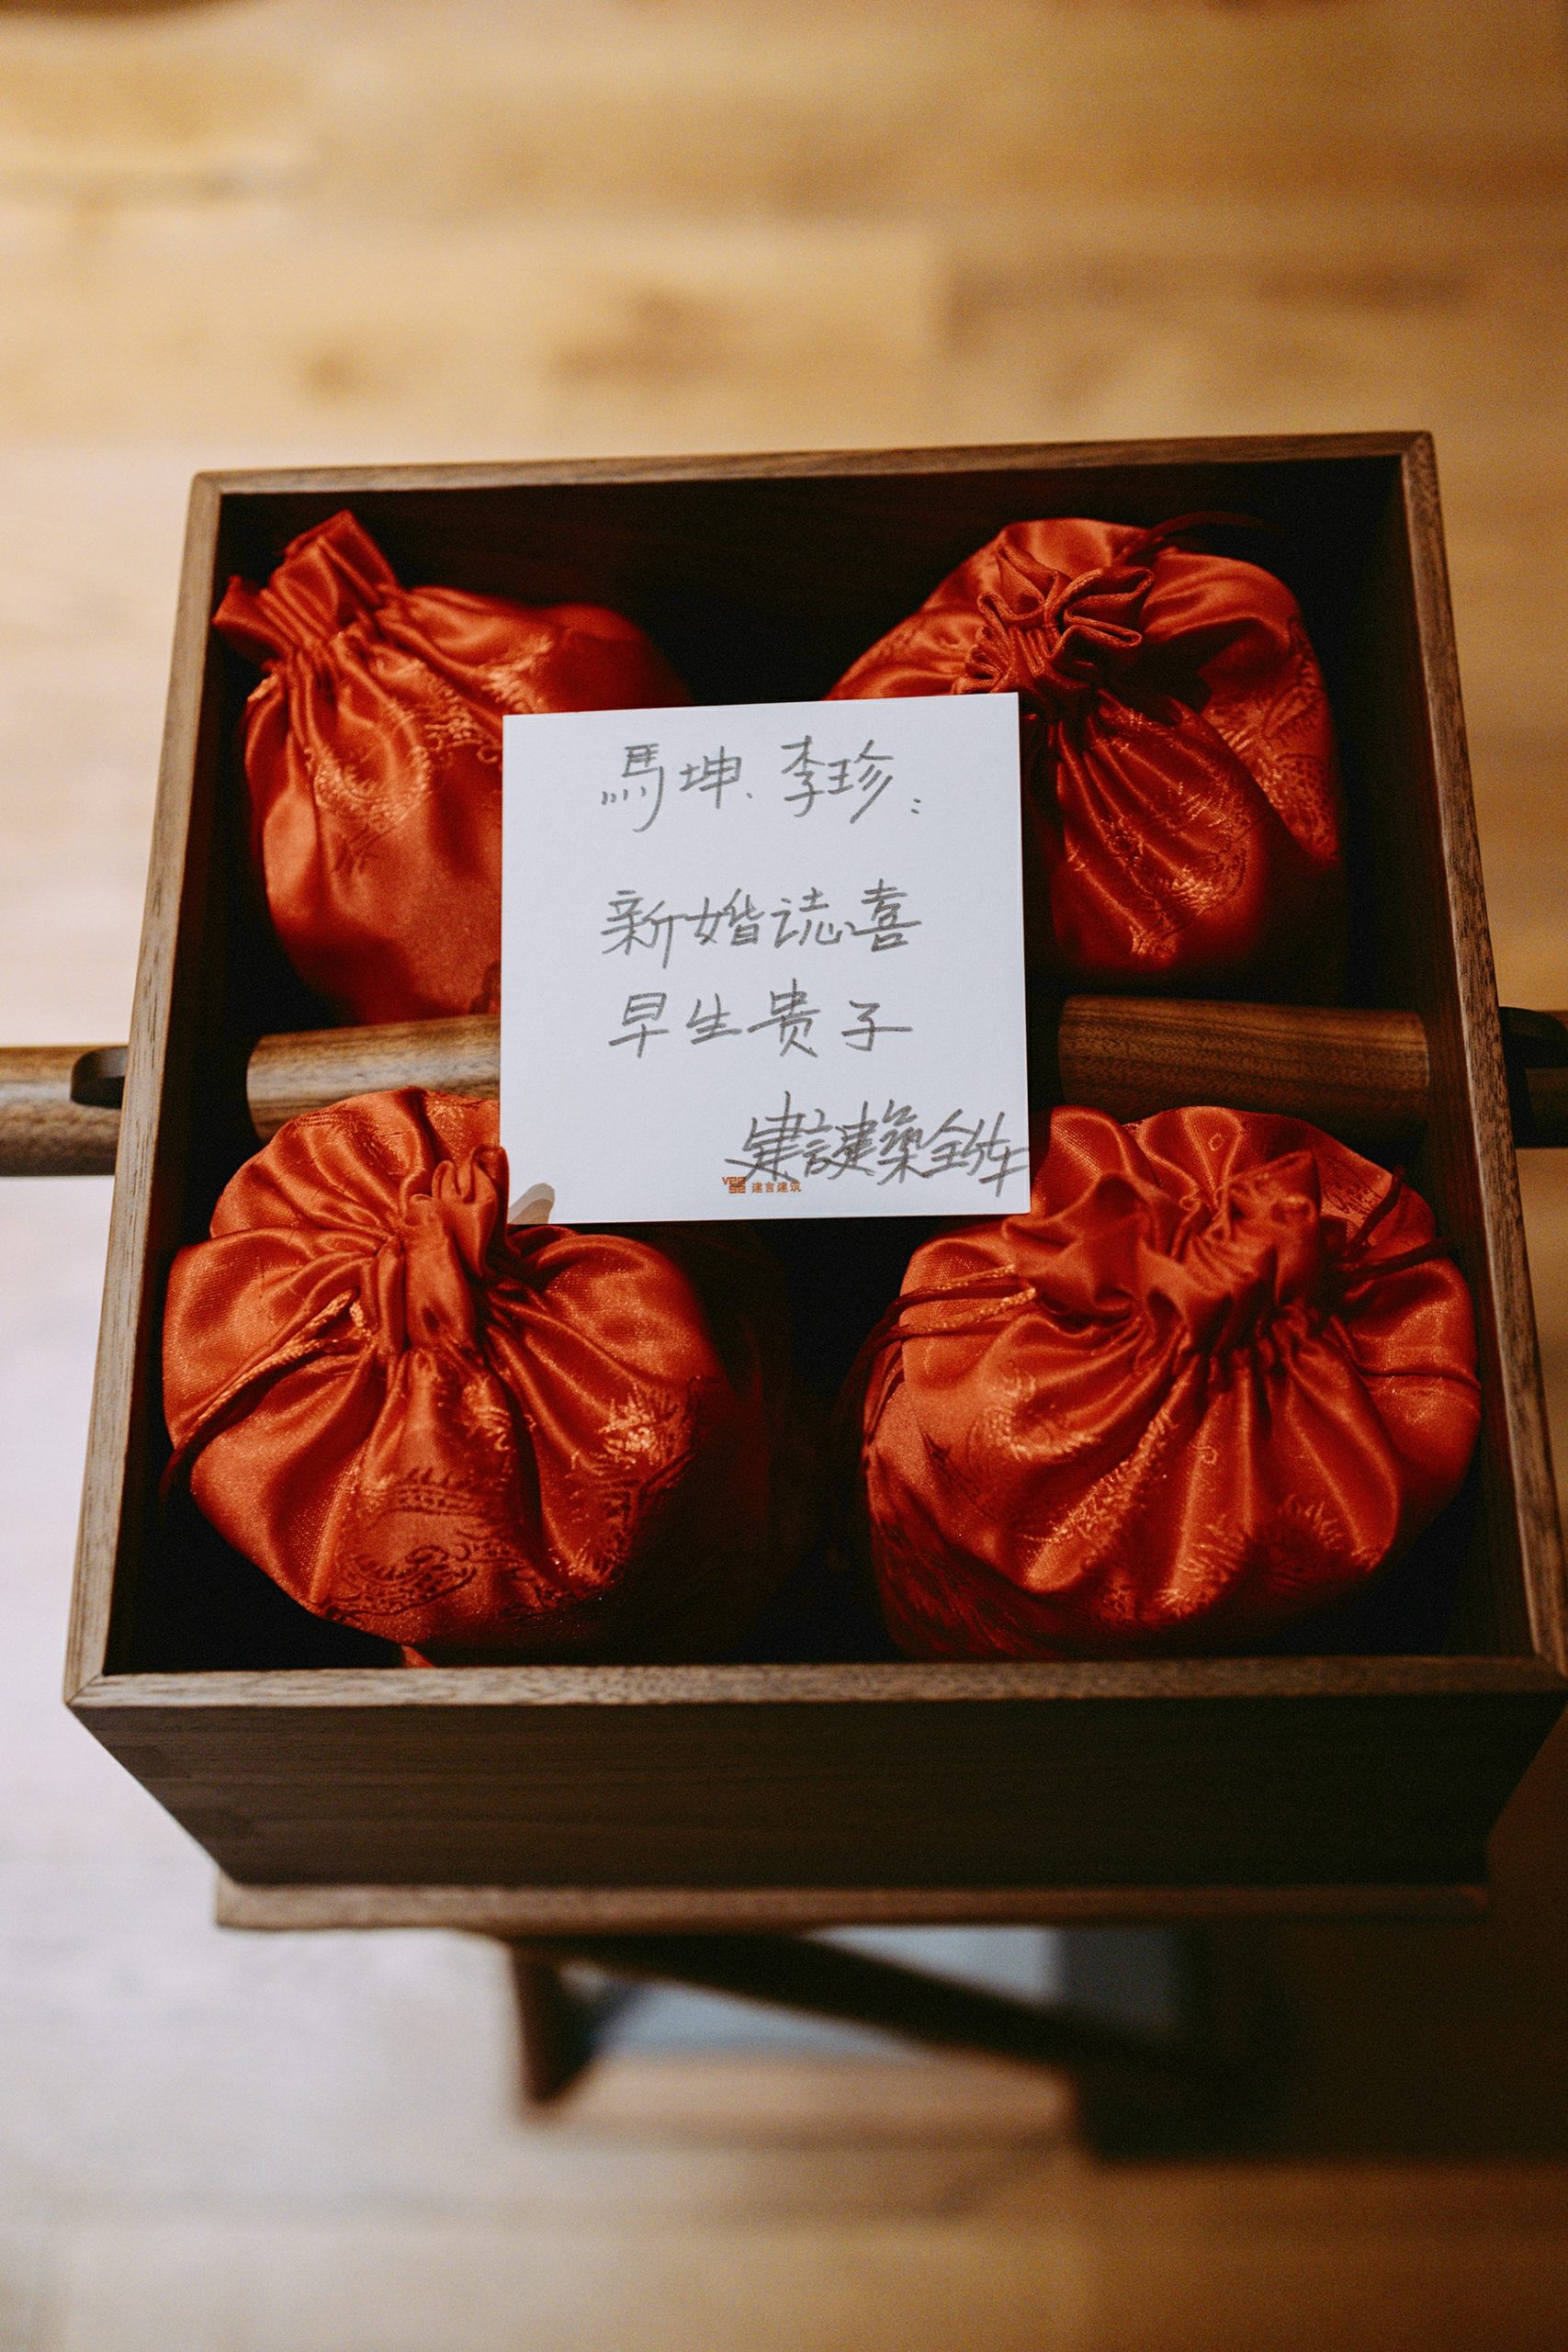 馬坤、李珍：
新婚誌喜
早生贵子
建言建築全体
建言建筑